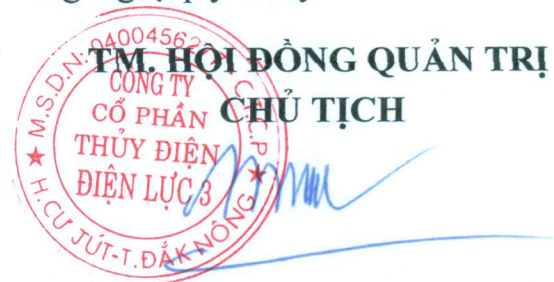 TM. HỘI ĐỒNG QUẢN TRỊ
CHỦ TỊCH
M.S.D.N: 04004562
C.T.C.P
CÔNG TY
CỔ PHẦN
THỦY ĐIỆN
ĐIỆN LỰC 3
H.CƯ JÚT-T.ĐẮK NÔNG